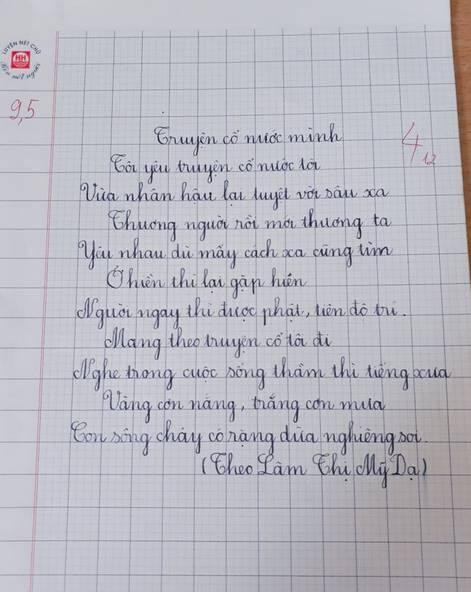 LUYỆN NÉT CHỮ
HH
Rèn nết người
9,5
4
12
Truyện cổ nước mình
Tôi yêu truyện cổ nước tôi
Vừa nhân hậu lại tuyệt vời sâu xa
Thương người rồi mới thương ta
Yêu nhau dù mấy cách xa cũng tìm
Ở hiền thì lại gặp hiền
Người ngay thì được phật, tiên độ trì.
Mang theo truyện cổ tôi đi
Nghe trong cuộc sống thầm thì tiếng xưa
Vàng cơn nắng, trắng cơn mưa
Con sông chảy có rặng dừa nghiêng soi.
(Theo Lâm Thị Mỹ Dạ)